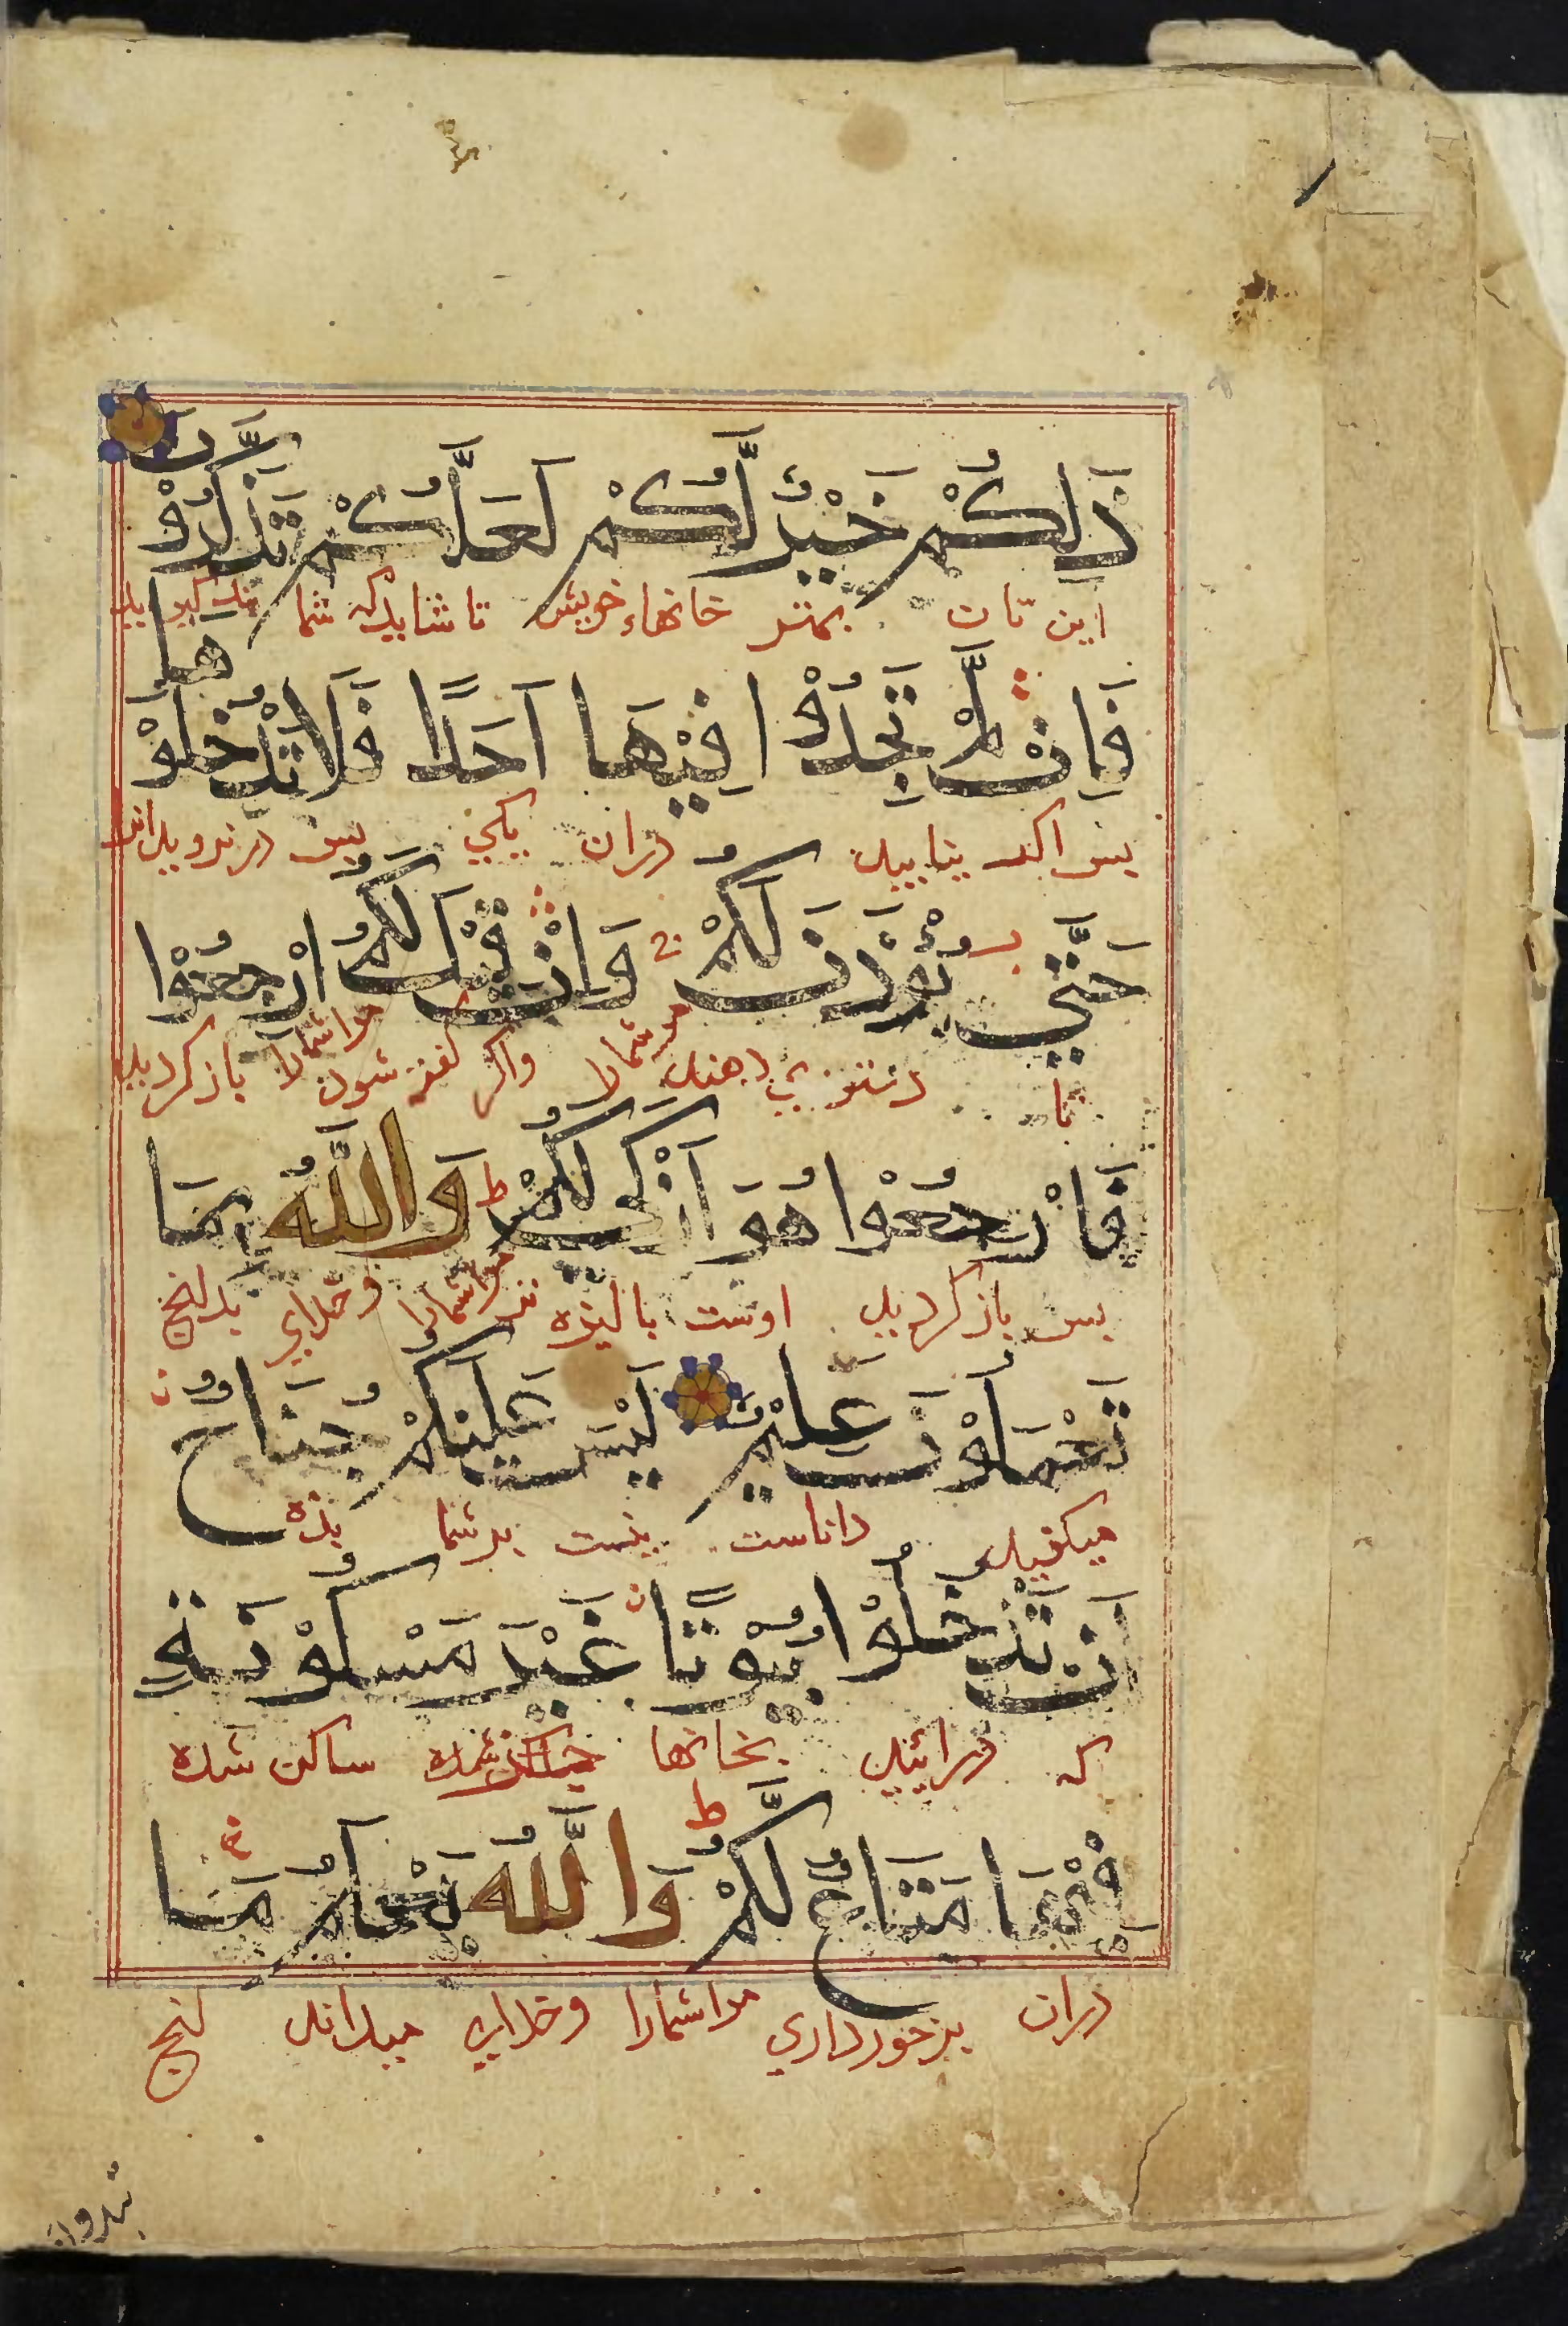 ذَلِكُمْ خَيْرٌ لَّكُمْ لَعَلَّكُمْ تَذَكَّرُوْنَ
این تان بهتر خانهاء خویش تا شاید که شما پند گیرید
فَاِنْ لَّمْ تَجِدُوْا فِيْهَا اَحَدًا فَلَا تَدْخُلُوْهَا
پس اگر نیابید دران یکی پس درنروید اندر
حَتَّي يُوْذَنَ لَكُمْ وَاِنْ قِيْلَ لَكُمُ ارْجِعُوْا
تا دستوری دهند مر شما را واگر گفته شود مر شما را باز گردید
فَارْجِعُوْا هُوَ اَزْكَي لَكُمْ ط وَاللَّهُ بِمَا
پس باز گردید اوست پاکیزه تر مر شما را وخدای بدانچ
تَعْمَلُوْنَ عَلِيْمٌ لَيْسَ عَلَيْكُمْ جُنَاحٌ
میکنید داناست نیست بر شما بزه
اَنْ تَدْخُلُوْا بُيُوْتًا غَيْرَ مَسْكُوْنَةٍ
که درآئید بخانها ساکن شده
فِيْهَا مَتَاعٌ لَّكُمْ ط وَاللَّهُ يَعْلَمُ مَا
دران برخورداری مر شما را وخدای میداند آنچ
تبدون